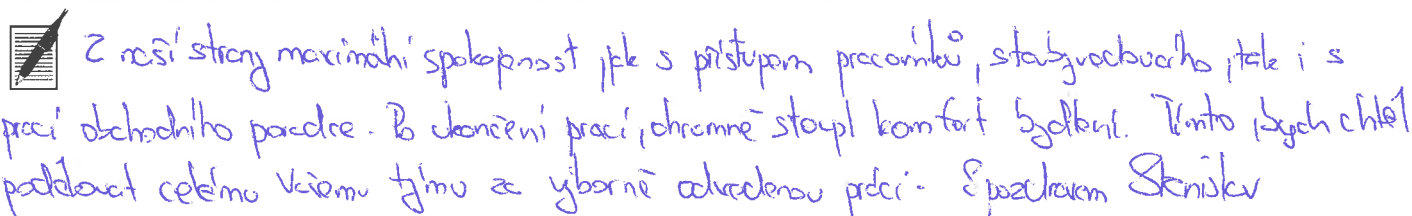 Z naší strany maximální spokojenost, jak s přístupem pracovníků, stavbyvedoucího, tak i s
prací obchodního poradce. Po ukončení prací, ohromně stoupl komfort bydlení. Tímto, bych chtěl
poděkovat celému Vašemu týmu za výborně odvedenou práci. S pozdravem